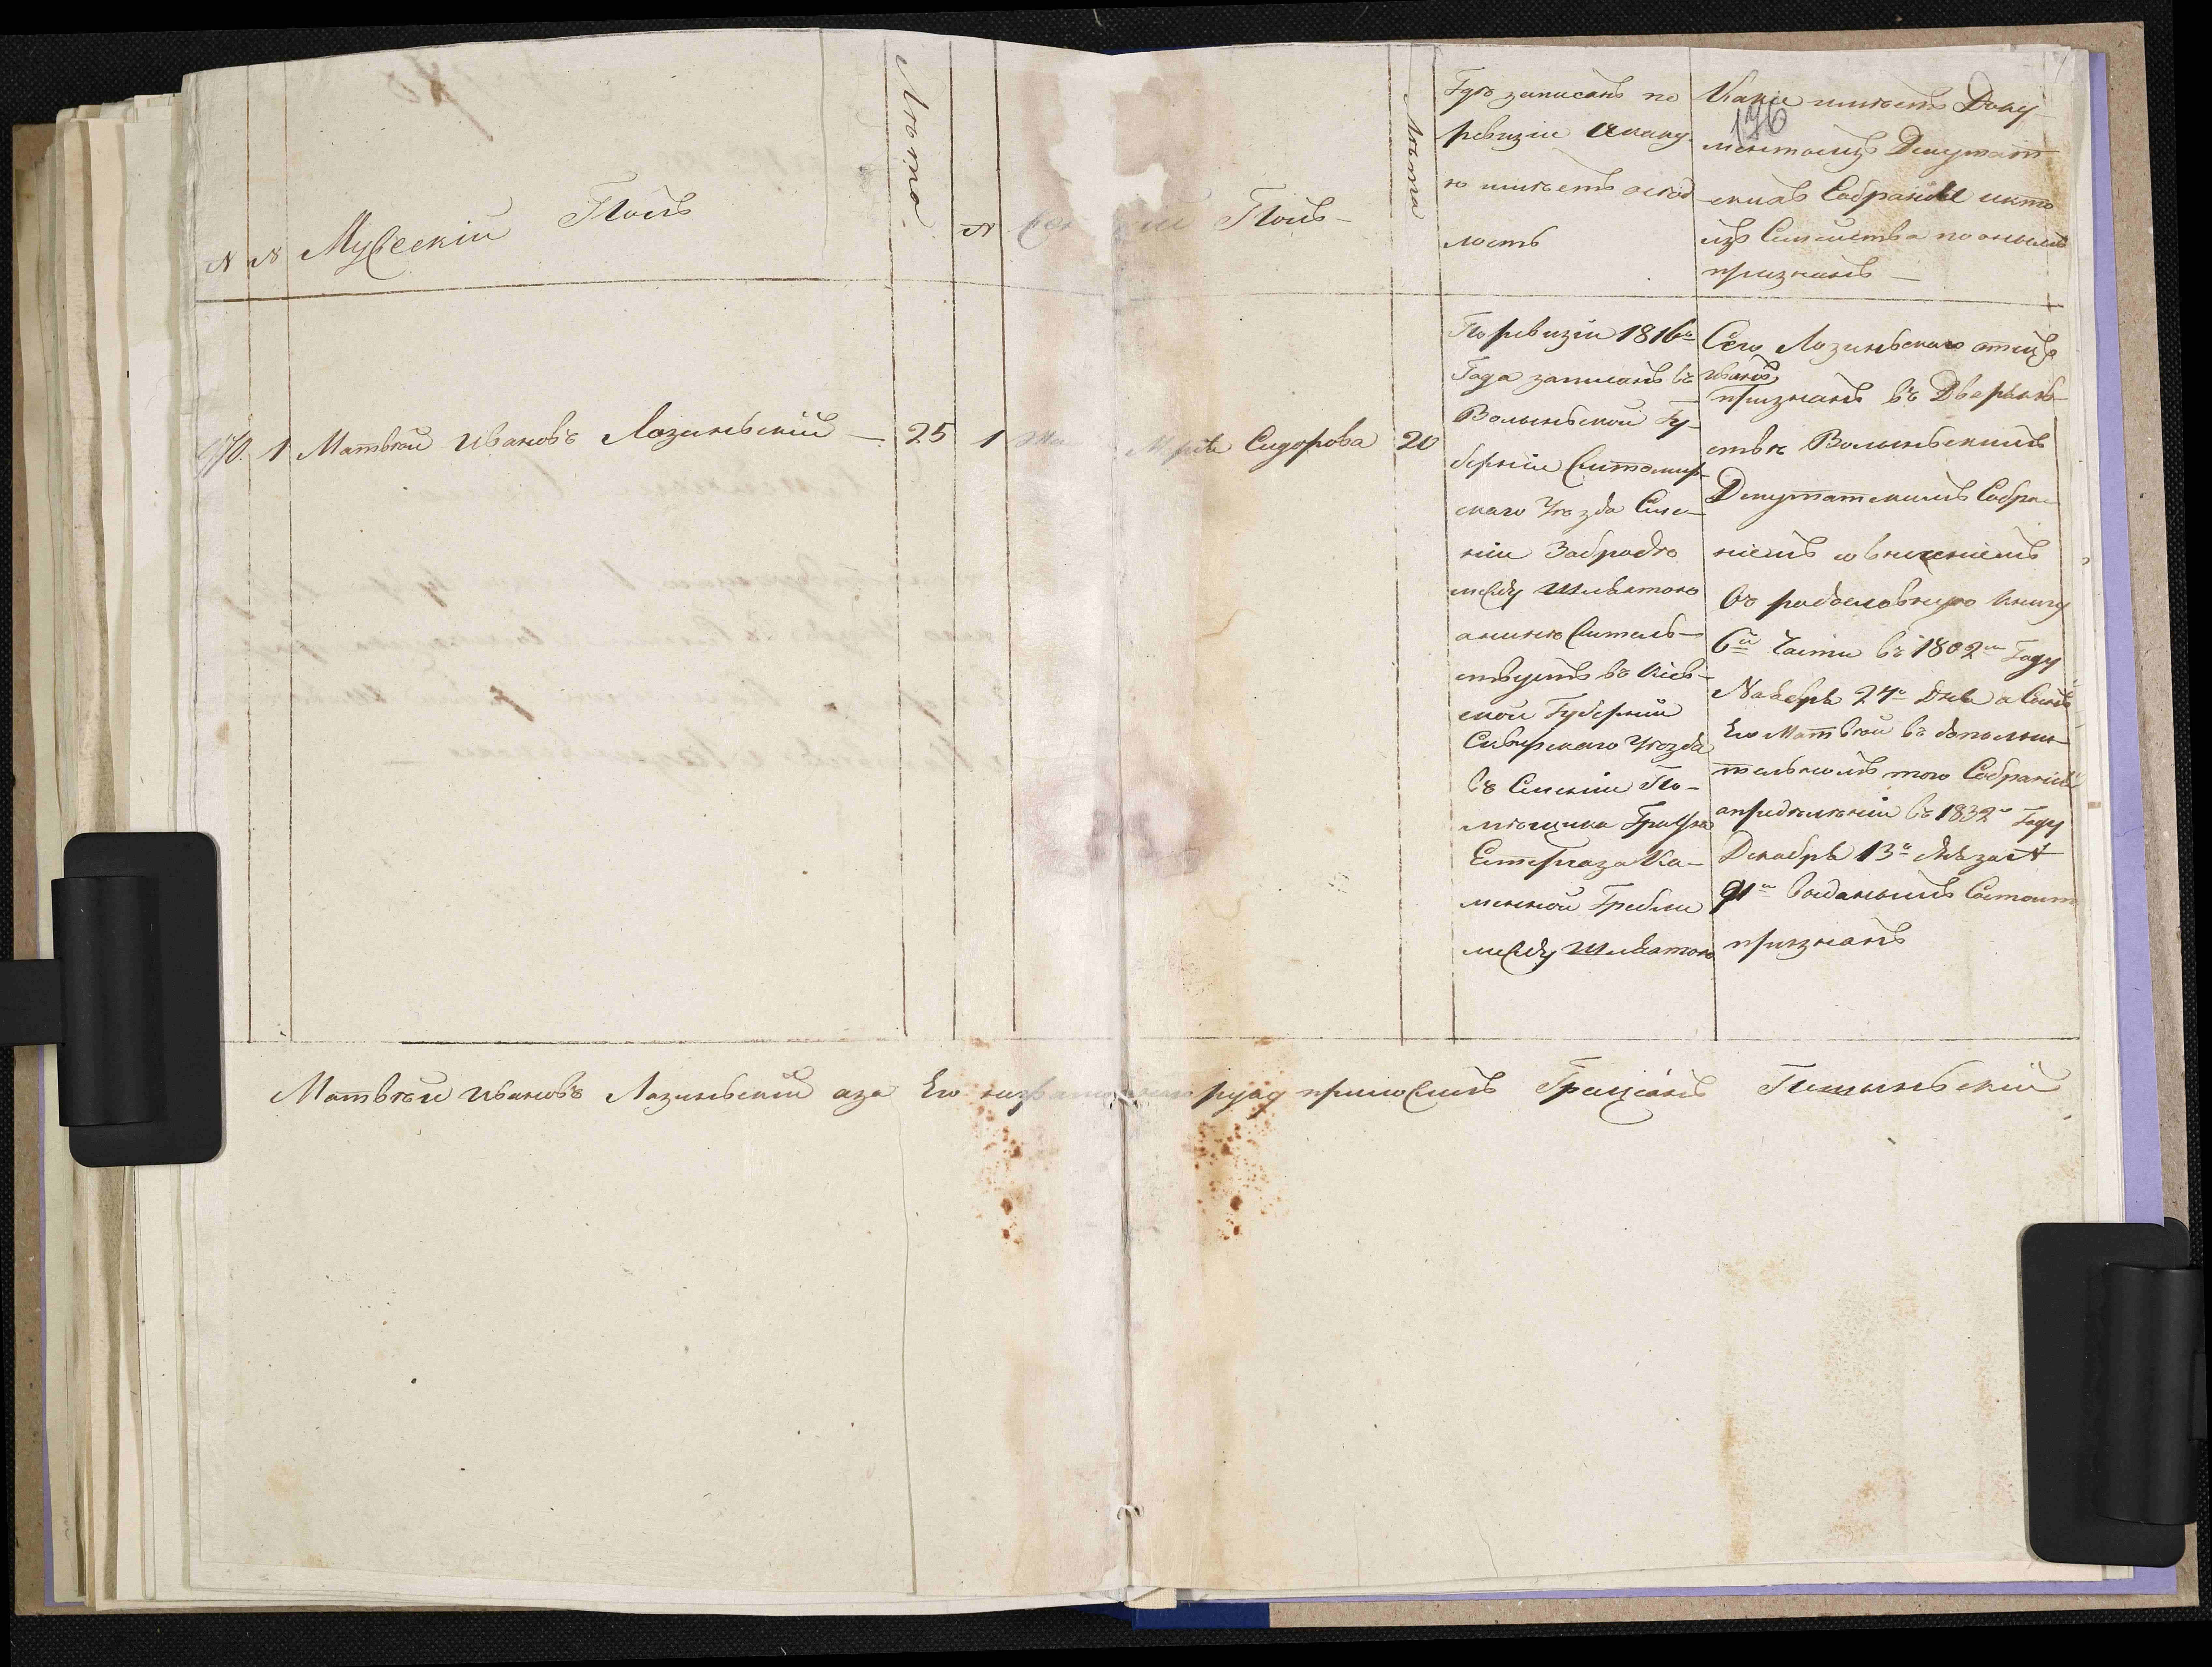 N
N
Мужескій Полъ
Лѣта
N
Полъ
Лѣта
Гдѣ записанъ по
ревизіи и каку-
ю имѣетъ осѣд
лость
Какіе имѣетъ Доку
176
менты изъ Депутат
скихъ Собраніи и кто
изъ Семейства по онымъ
признанъ
1 Матвѣй Ивановъ Лозиньскій — 25
1 Марія Сидорова 20
По ревизіи 1816го
Года записанъ въ
Волыньской Гу-
берніи Житомир-
скаго Уѣзда Селе-
ніи
между Шляхтою
а нынѣ Жительс-
твуетъ въ Кіев-
ской Губерніи
Сквирскаго Уѣзда
въ Селеніи По-
мѣщика Графа
Ка-
менной Гребли
между Шляхтою
Сего Лозиньскаго отецъ
Иванъ
признанъ въ Дворянс-
твѣ Волыньскимъ
Депутатскимъ Собра-
ніемъ со внесеніемъ
въ родословную книгу
6й Части въ 1802м Году
Ноября 24го дня а Сынъ
Его Матвѣй въ дополни-
тельномъ того Собранія
опредѣленіи въ 1832м Году
Декабря 13го дня за N
91м выданымъ Состоит
признанъ
Матвѣй Ивановъ Лозиньскій а за Его руку приложилъ